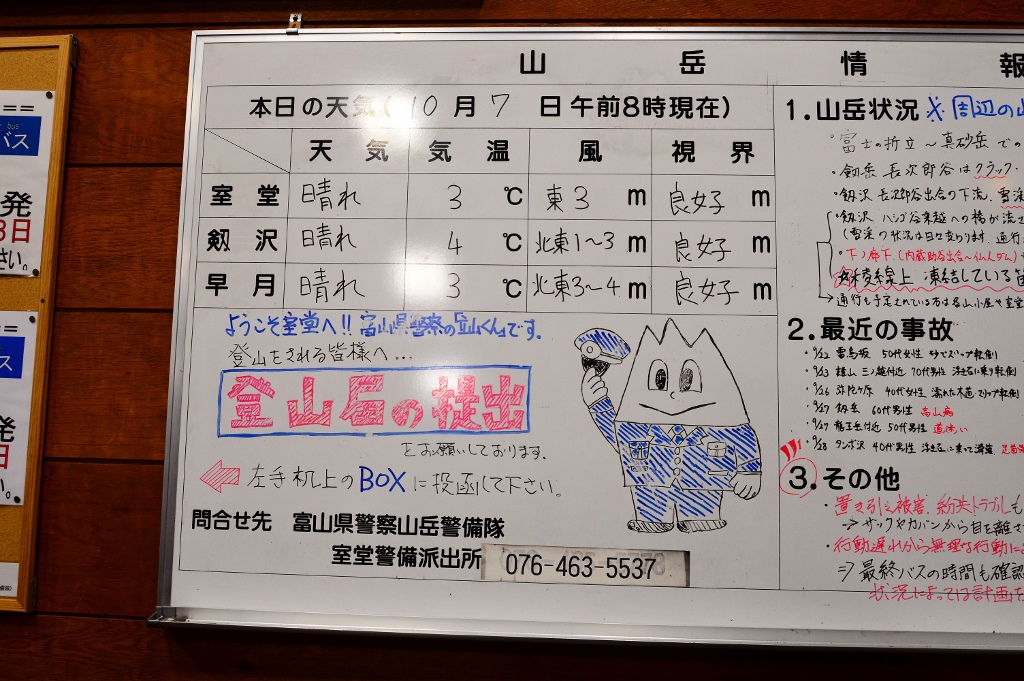 山岳情報
本日の天気( 10月7日午前8時現在)
天気 気温 風 視界
室堂 晴れ 3 ℃ 東3 m 良好 m
剱沢 晴れ 4 ℃ 北東1〜3 m 良好 m
早月 晴れ 3 ℃ 北東3〜4 m 良好 m
ようこそ室堂へ!! 富山県警察の「立山くん」です。
登山をされる皆様へ...
登山届の提出
をお願いしております。
左手机上のBOXに投函して下さい。
問合せ先 富山県警察山岳警備隊
室堂警備派出所 076-463-5537
1.山岳状況 ※周辺の山
・富士の折立〜真砂岳での
・剱岳 長次郎谷はクラック・
・剱沢 長次郎谷出合の下流、雪渓
・剱沢 ハシゴ谷乗越への橋が流
(雪渓の状況は日々変ります、通行
・下ノ廊下(内蔵助谷出合〜仙人ダム)
稜線上 凍結している
→通行を予定されている方は各山小屋や室堂
2.最近の事故
・9/22 雷鳥坂 50代女性 砂でスリップ転倒
・9/23 雄山 三ノ越付近 70代男性 浮き石に乗り転倒
・9/26 弥陀ヶ原 40代女性 濡れた木道 スリップ転倒
・9/27 剱岳 60代男性 高山病
・9/27 龍王岳付近 50代男性 道迷い
・9/28 タンボ沢 40代男性 浮き石に乗って滑落
3.その他
・置き引き被害、紛失トラブルも
→ザックやカバンから目を離さ
・行動遅れから無理な行動によ
⇒最終バスの時間も確認
状況によっては計画を
バス
発
日
さい。
バス
発
日
さい。